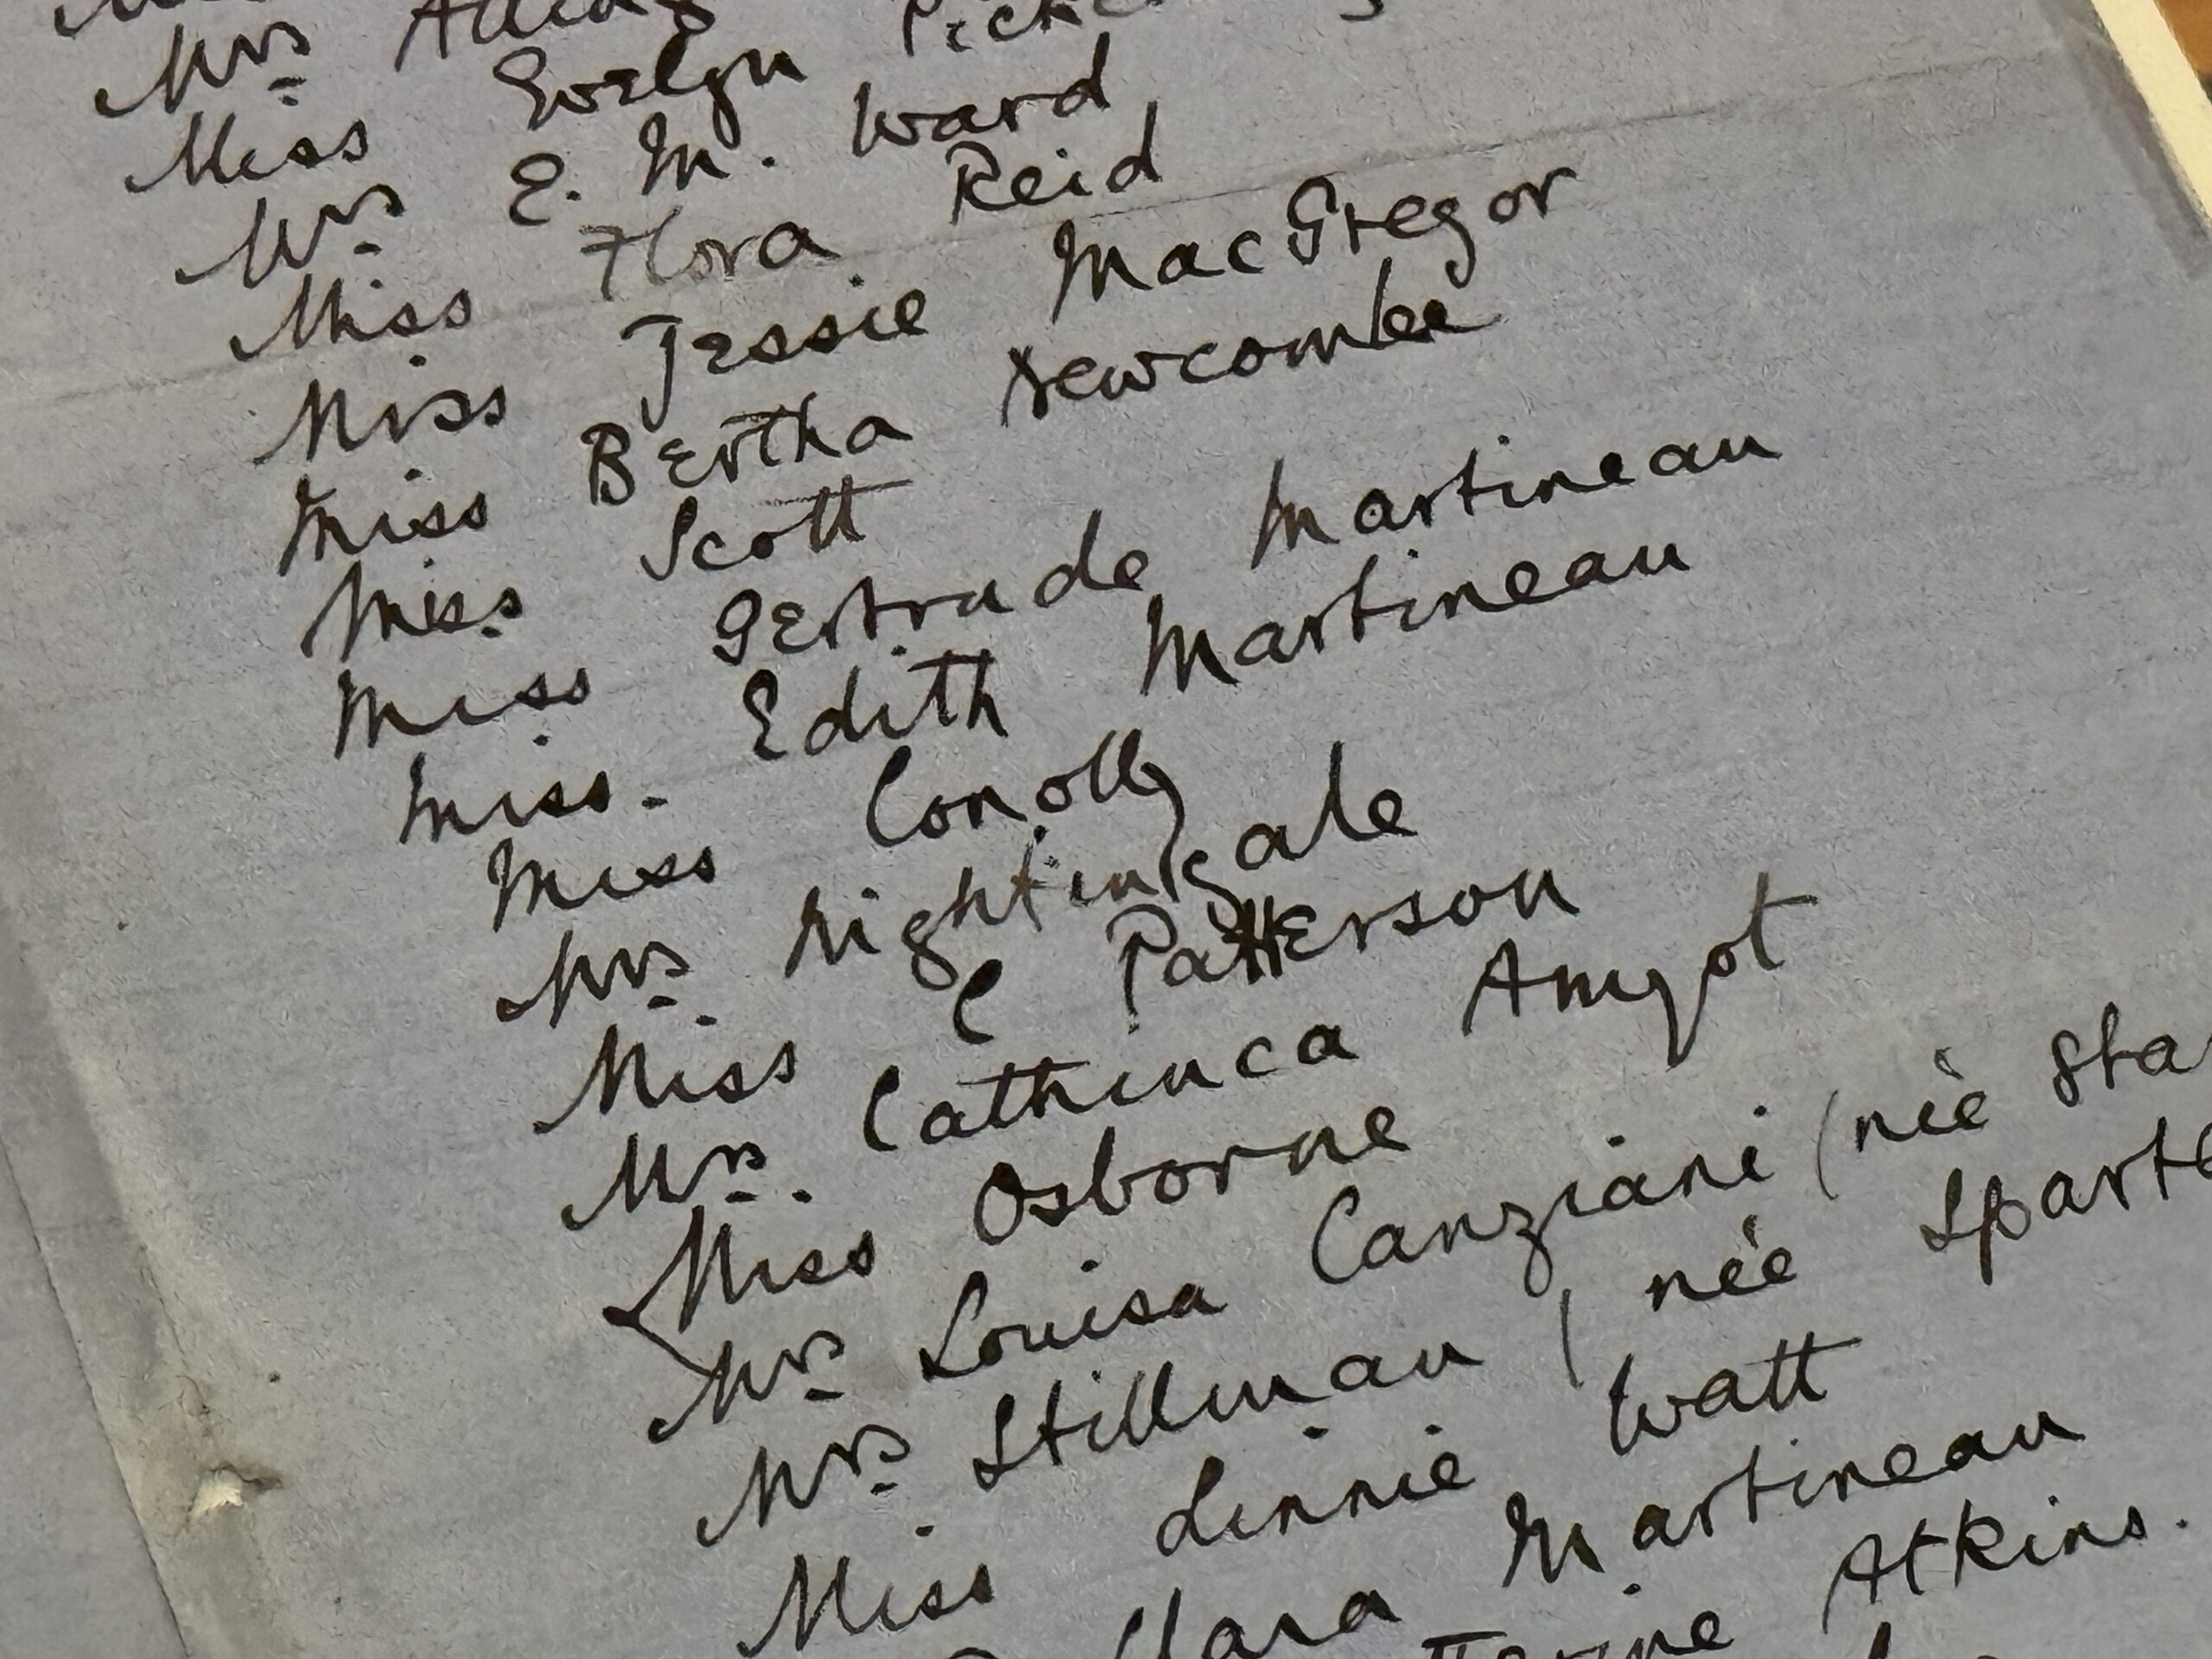 Mrs
Miss Evelyn
Mrs E. M. Ward
Miss Flora Reid
Miss Jessie MacGregor
Miss Bertha Newcombe
Miss Scott
Miss Gertrude Martineau
Miss. Edith Martineau
Miss Conolly
Mrs Nightingale
Miss C Patterson
Mrs. Cathinca Amyot
Miss Osborne
Mrs Louisa Canziani (née Sta
Mrs Stillman ( née Sparta
Miss Linnie Watt
Clara Martineau
Atkins.